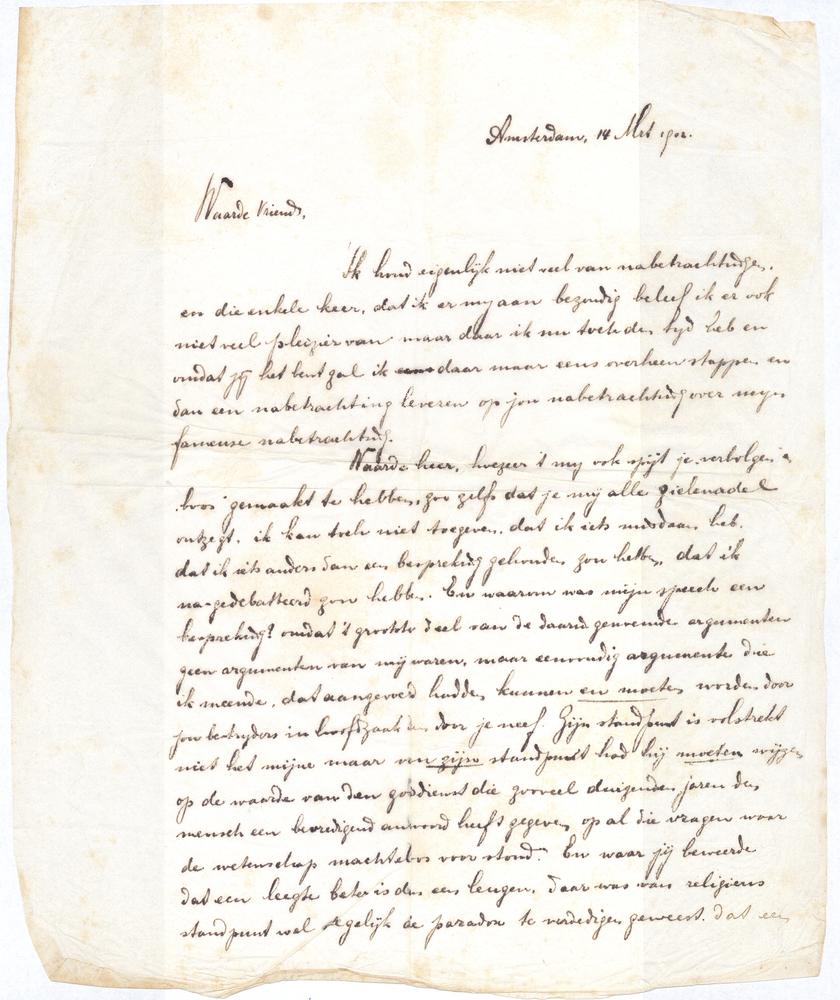 Amsterdam, 14 Mrt 1902.
Waarde Vriend,
Ik houd eigenlijk niet veel van nabetrachtingen,
en die enkele keer, dat ik er mij aan bezondig beleef ik er ook
niet veel pleizier van maar daar ik nu toch den tijd heb en
omdat jij het bent zal ik daar maar eens overheen stappen en
dan een nabetrachting leveren op jou nabetrachting over mijn
fameuse nabetrachting.
Waarde heer, hoezeer 't mij ook spijt je verbolgen
boos gemaakt te hebben, zoo zelfs dat je mij alle zielenadel
ontzegt, ik kan toch niet toegeven, dat ik iets misdaan heb,
dat ik iets anders dan een bespreking gehouden zou hebben, dat ik
na-gedebatteerd zou hebben. En waarom was mijn speech een
bespreking? omdat 't grootste deel van de daarin genoemde argumenten
geen argumenten van mij waren, maar eenvoudig argumenten die
ik meende, dat aangevoerd hadden kunnen en moeten worden door
jou bestrijders in hoofdzaak dan door je neef. Zijn standpunt is volstrekt
niet het mijne maar van zijn standpunt had hij moeten wijzen
op de waarde van den godsdienst die zooveel duizenden jaren den
mensch een bevredigend antwoord heeft gegeven op al die vragen waar
de wetenschap machteloos voor stond. En waar jij beweerde
dat een leegte beter is dan een leugen, daar was van religieus
standpunt wel degelijk de paradox te verdedigen geweest, dat een